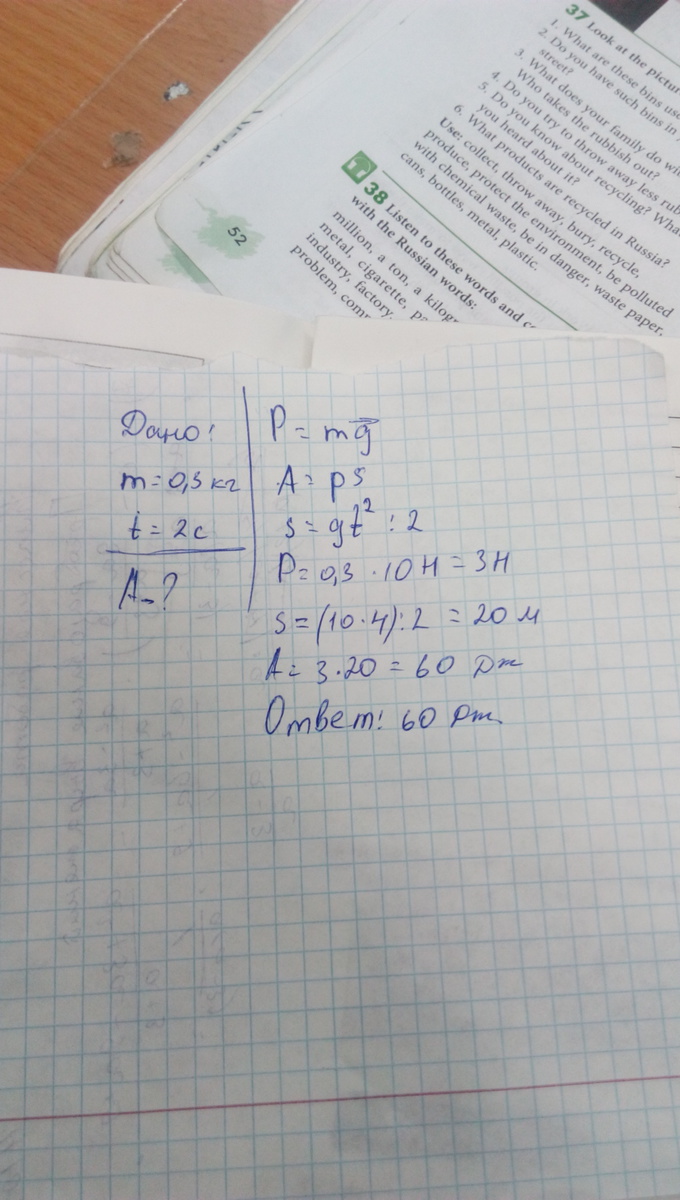 37 Look at the pictur
1. What are these bins use
2. Do you have such bins in
street?
3. What does your family do wi
Who takes the rubbish out?
4. Do you try to throw away less rub
5. Do you know about recycling? Wha
you heard about it?
6. What products are recycled in Russia?
Use: collect, throw away, bury, recycle,
produce, protect the environment, be polluted
with chemical waste, be in danger, waste paper,
cans, bottles, metal, plastic.
38 Listen to these words and c
with the Russian words:
million, a ton, a kilogr
metal, cigarette, pa
industry, factory,
problem, com
52
Дано:
m = 0,3 кг
t = 2с
A - ?
P = mg
A = ps
s = gt² : 2
P = 0,3 · 10 Н = 3Н
s = (10·4):2 = 20 м
A = 3·20 = 60 Дж
Ответ: 60 Дж.